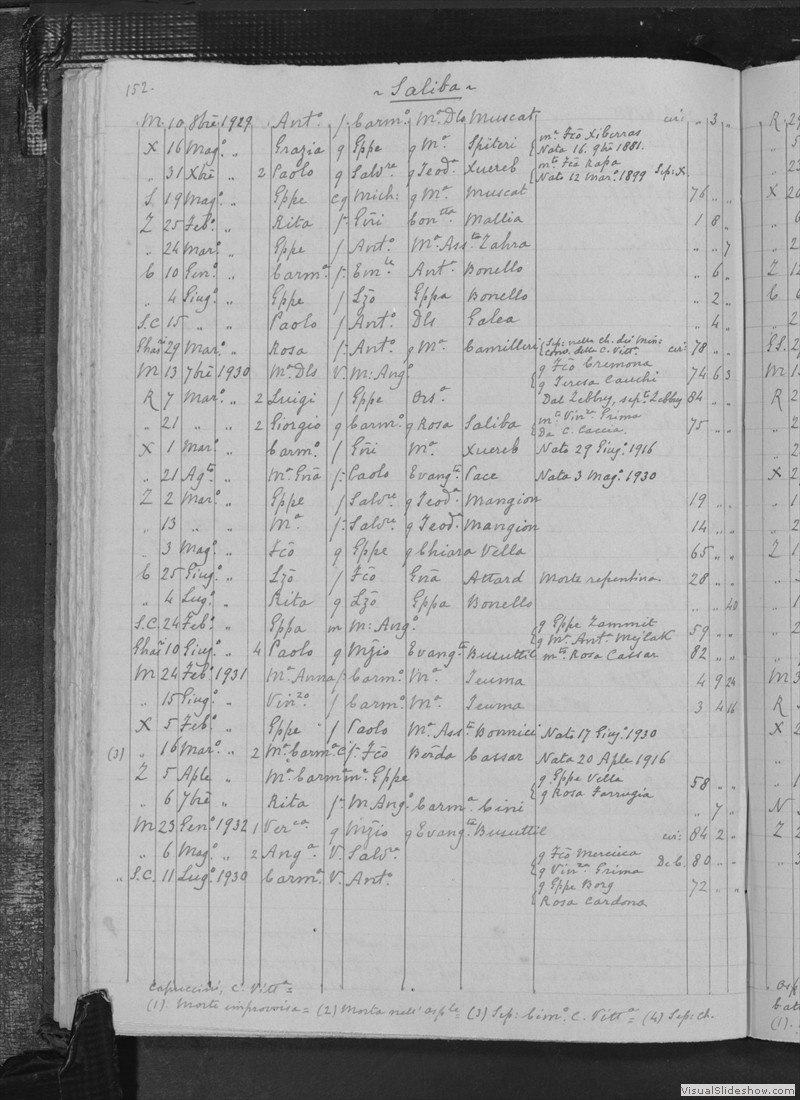 152.
~ Saliba ~
M 10 8bre 1929 Anto. f Carmo. Ma. Dls Muscat cir: " 3 "
X 16 Mago. " Grazia g Eppe g Ma. Spiteri { ma. Fcō Xiberras
Nata 16. 9bre 1881.
" 31 Xbre " 2 Paolo g Salvre g Teoda. Xuereb { mto Fcā Rapa
Nato 12 Maro. 1899 Sep: X.
S. 19 Mago. " Eppe cg Mich: g Ma. Muscat 76 " "
Z 25 Febo. " Rita f: Gñi Contta Mallia 1 8 "
" 24 Maro. " Eppe f Anto. Ma. Assta Zahra " " 7
C 10 Geno. " Carma. f: Emle Anta. Bonello " 6 "
" 4 Giugo. " Eppe f Lzō Eppa Bonello " 2 "
S.C 15 " " Paolo f Anto. Dls Galea " 4 "
Għar 29 Maro. " Rosa f: Anto. g Ma. Camilleri { Sep: nella ch. dei Min:
conv. della C. Vitta. cir: 78 " "
M 13 7bre 1930 Ma. Dls V. M: Ango. { g Fcō Cremona
g Teresa Cauchi 74 6 3
R 7 Maro. " 2 Luigi f Eppe Orsa. Dal Zebbug, septo Zebbug 84 " "
" 21 " " 2 Giorgio g Carmo. g Rosa Saliba { ma. Vinza Grima
Da C. Caccia. 75 " "
X 1 Maro. " Carmo. f Gñi Ma. Xuereb Nato 29 Giugo. 1916
" 21 Agto " Ma. Gñā f: Paolo Evangta Pace Nata 3 Mago. 1930
Z 2 Maro. " Eppe f Salvre g Teoda. Mangion 19 " "
" 13 " " Ma. f: Salvre g Teoda. Mangion 14 " "
" 3 Mago. " Fcō g Eppe g Chiara Vella 65 " "
C 25 Giugo. " Lzō f Fcō Gñā Attard Morte repentina. 28 " "
" 4 Lugo. " Rita g Lzō Eppa Bonello " " 40
S.C 24 Febo. " Eppa m M: Ango. { g Eppe Zammit
g Ma. Anta. Mejlak 59 " "
Għar 10 Giugo. " 4 Paolo g Mzio Evangta Busuttil mto Rosa Cassar 82 " "
M 24 Febo. 1931 Ma. Anna f: Carmo. Ma. Teuma 4 9 24
" 15 Giugo. " Vinzo. f Carmo. Ma. Teuma 3 4 16
X 5 Febo. " Eppe f Paolo Ma. Assta Bonnici Nato 17 Giugo. 1930
(3) " 16 Maro. " 2 Ma. Carma. f: Fcō Borda Cassar Nata 20 Aple 1916
Z 5 Aple " Ma. Carma. ma. Eppe { g Eppe Vella
g Rosa Farrugia 58 " "
" 6 7bre " Rita f: M. Ango. Carma. Cini " 7 "
M 23 Geno. 1932 1 Verca. g Mzio g Evangta Busuttil cir: 84 2 "
" 6 Mago. " 2 Anga. V. Salvre { g Fcō Mercieca
g Vinza. Grima De C. 80 " "
" S.C. 11 Lugo. 1930 Carma. V. Anto. { g Eppe Borg
Rosa Cardona 72 " "
Capuccini, C. Vitta =
(1). Morte improvvisa = (2) Morta nell' osple = (3) Sep: Cimo. C. Vitta = (4) Sep: Ch.
VisualSlideshow.com